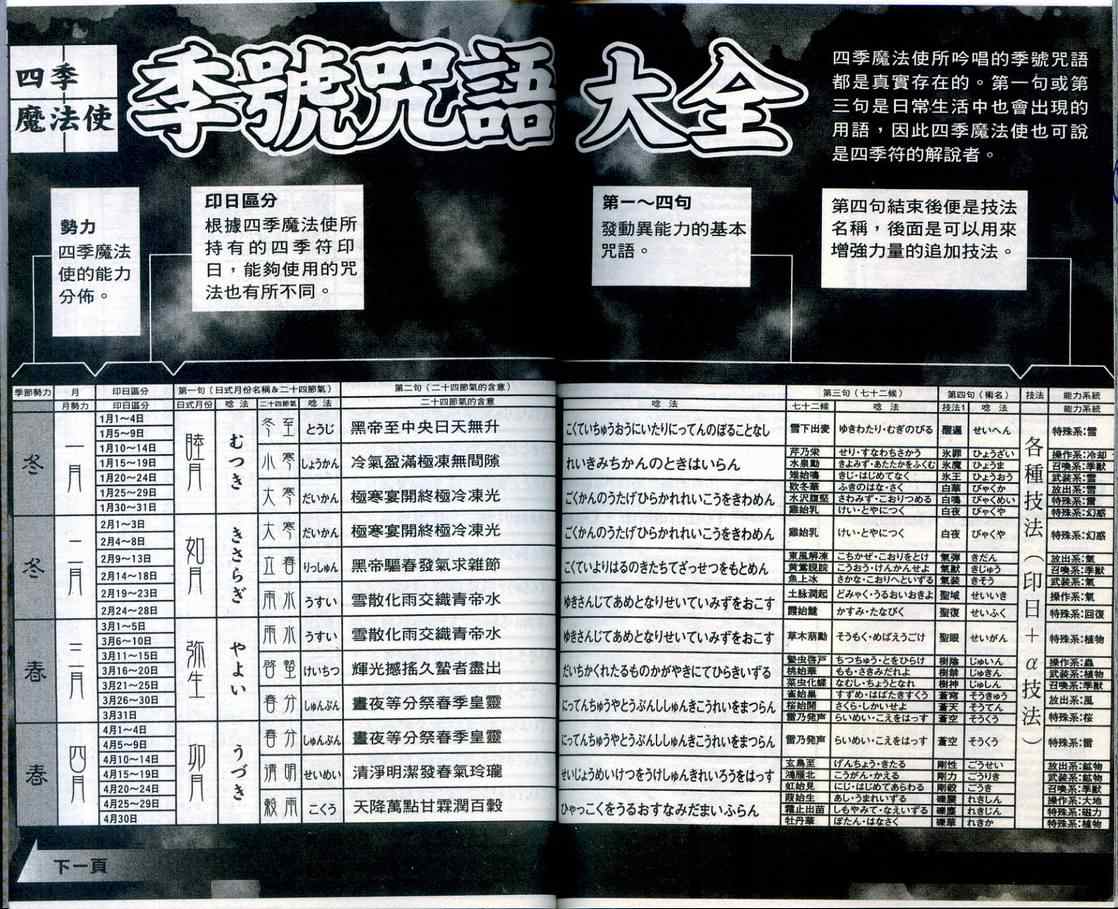 四季
魔法使
季號咒語大全
四季魔法使所吟唱的季號咒語
都是真實存在的。第一句或第
三句是日常生活中也會出現的
用語,因此四季魔法使也可說
是四季符的解說者。
勢力
四季魔法
使的能力
分佈。
印日區分
根據四季魔法使所
持有的四季符印
日,能夠使用的咒
法也有所不同。
第一~四句
發動異能力的基本
咒語。
第四句結束後便是技法
名稱,後面是可以用來
增強力量的追加技法。
季節勢力 月 印日區分 第一句(日式月份名稱&二十四節氣) 第二句(二十四節氣的含意) 第三句(七十二候) 第四句(術名) 技法 能力系統
月勢力 印日區分 日式月份 唸法 二十四節氣 唸法 二十四節氣的含意 唸法 七十二候 唸法 技法1 唸法 能力系統
冬 一月
1月1~4日
1月5~9日
1月10~14日
1月15~19日
1月20~24日
1月25~29日
1月30~31日
睦月 むつき
冬至 とうじ 黑帝至中央日天無升 こくていちゅうおうにいたりにってんのぼることなし
小寒 しょうかん 冷氣盈滿極凍無間隙 れいきみちかんのときはいらん
大寒 だいかん 極寒宴開終極冷凍光 ごくかんのうたげひらかれれいこうをきわめん
雪下出麦 ゆきわたり・むぎのびる せいへん 特殊系:雪
芹乃栄 せり・すなわちさかう 氷罪 ひょうざい 操作系:冷却
水泉動 きよみず・あたたかをふくむ 氷魔 ひょうま 召喚系:季獸
雉始鳴 きじ・はじめてなく 氷王 ひょうおう 武装系:雪
款冬華 ふきのはな・さく 白華 びゃくか 放出系:雪
水沢腹堅 さわみず・こおりつめる 白鳴 びゃくめい 特殊系:雷
雞始乳 けい・とやにつく 白夜 びゃくや 特殊系:幻惑
各種技法(印日+α技法)
冬 二月
2月1~3日
2月4~8日
2月9~13日
2月14~18日
2月19~23日
2月24~28日
如月 きさらぎ
大寒 だいかん 極寒宴開終極冷凍光 ごくかんのうたげひらかれれいこうをきわめん
立春 りっしゅん 黑帝驅春發氣求雜節 こくていよりはるのきたちてざっせつをもとめん
雨水 うすい 雪散化雨交織青帝水 ゆきさんじてあめとなりせいていみずをおこす
雞始乳 けい・とやにつく 白夜 びゃくや 特殊系:幻惑
東風解凍 こちかぜ・こおりをとけ 氣彈 きだん 放出系:氣
黄鶯睍睆 こうおう・けんかんせよ 氣獸 きじゅう 召喚系:季獸
魚上冰 さかな・こおりへといずる 氣装 きそう 武装系:氣
土脉潤起 どみゃく・うるおいおきよ 聖域 せいいき 操作系:氣
霞始靆 かすみ・たなびく 聖復 せいふく 特殊系:回復
春 三月
3月1~5日
3月6~10日
3月11~15日
3月16~20日
3月21~25日
3月26~30日
3月31日
弥生 やよい
雨水 うすい 雪散化雨交織青帝水 ゆきさんじてあめとなりせいていみずをおこす
啓蟄 けいちつ 輝光撼搖久蟄者盡出 だいちかくれたるものかがやきにてひらきいずる
春分 しゅんぶん 晝夜等分祭春季皇靈 にってんちゅうやとうぶんししゅんきこうれいをまつらん
草木萠動 そうもく・めばえうごけ 聖眼 せいがん 特殊系:植物
蟄虫啓戸 ちつちゅう・とをひらけ 樹陰 じゅいん 操作系:蟲
桃始華 もも・さきみだれよ じゅきん 武装系:植物
菜虫化蝶 なむし・ちょうとなれ 樹神 じゅしん 召喚系:季獸
雀始巣 すずめ・はばたきすくう 蒼穹 そうきゅう 放出系:風
桜始開 さくら・しかいせよ 蒼天 そうてん 特殊系:桜
雷乃発声 らいめい・こえをはっす 蒼空 そうくう
春 四月
4月1~4日
4月5~9日
4月10~14日
4月15~19日
4月20~24日
4月25~29日
4月30日
卯月 うづき
春分 しゅんぶん 晝夜等分祭春季皇靈 にってんちゅうやとうぶんししゅんきこうれいをまつらん
清明 せいめい 清淨明潔發春氣玲瓏 せいじょうめいけつをうけしゅんきれいろうをはっす
穀雨 こくう 天降萬點甘霖潤百穀 ひゃっこくをうるおすなみだまいふらん
雷乃発声 らいめい・こえをはっす 蒼空 そうくう 特殊系:雷
玄鳥至 げんちょう・きたる 剛性 ごうせい 放出系:鉱物
鴻雁北 こうがん・かえる 剛力 ごうりき 武装系:鉱物
虹始見 にじ・はじめてあらわる 剛毅 ごうき 召喚系:季獸
葭始生 あし・うまれいずる れきしん 操作系:大地
霜止出苗 しもやみて・なえいずる れきじん 特殊系:磁力
牡丹華 ぼたん・はなさく 礫華 れきか 特殊系:植物
下一頁